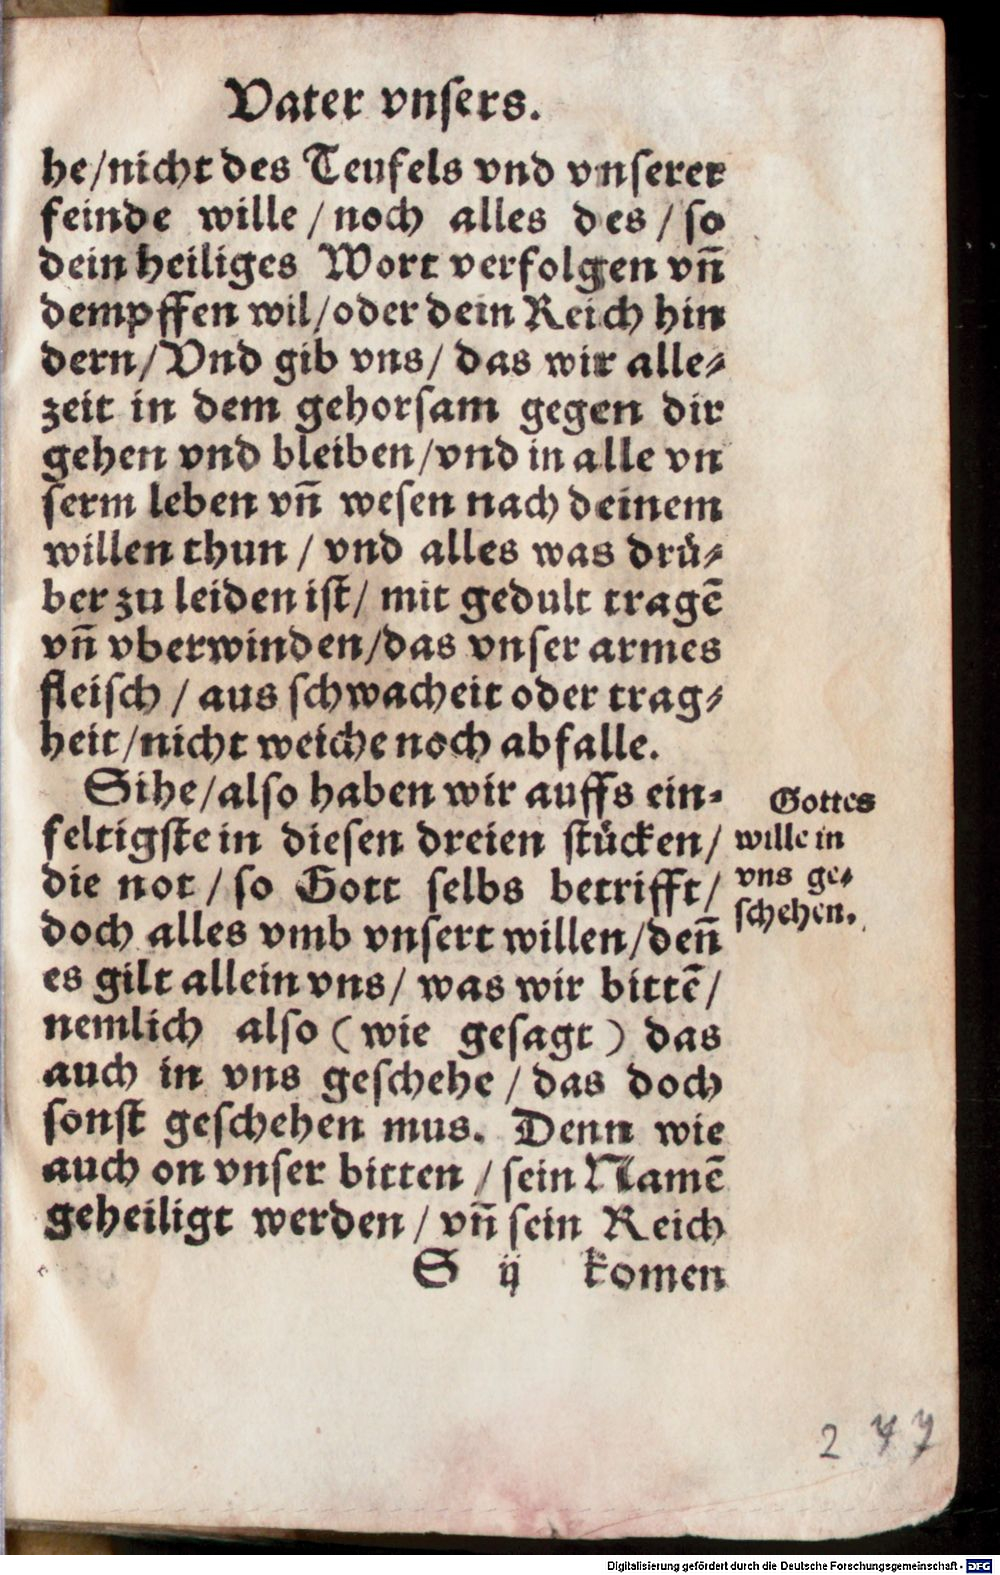 Vater vnſers.
he/nicht des Teufels vnd vnſerer
feinde wille / noch alles des / ſo
dein heiliges Wort verfolgen vn̄
dempffen wil/oder dein Reich hin
dern/Vnd gib vns/ das wir alle⸗
zeit in dem gehorſam gegen dir
gehen vnd bleiben/vnd in alle vn
ſerm leben vn̄ weſen nach deinem
willen thun / vnd alles was drü⸗
ber zu leiden iſt/ mit gedult tragē
vn̄ vberwinden/das vnſer armes
fleiſch / aus ſchwacheit oder trag⸗
heit/nicht weiche noch abfalle.
Sihe/alſo haben wir auffs ein⸗
feltigſte in dieſen dreien ſtücken/
die not / ſo Gott ſelbs betrifft/
doch alles vmb vnſert willen/den̄
es gilt allein vns/ was wir bittē/
nemlich alſo (wie geſagt) das
auch in vns geſchehe / das doch
ſonſt geſchehen mus. Denn wie
auch on vnſer bitten / ſein Namē
geheiligt werden/ vn̄ ſein Reich
S ij komen
Gottes
wille in
vns ge⸗
ſchehen.
2 77
Digitalisierung gefördert durch die Deutsche Forschungsgemeinschaft - DFG